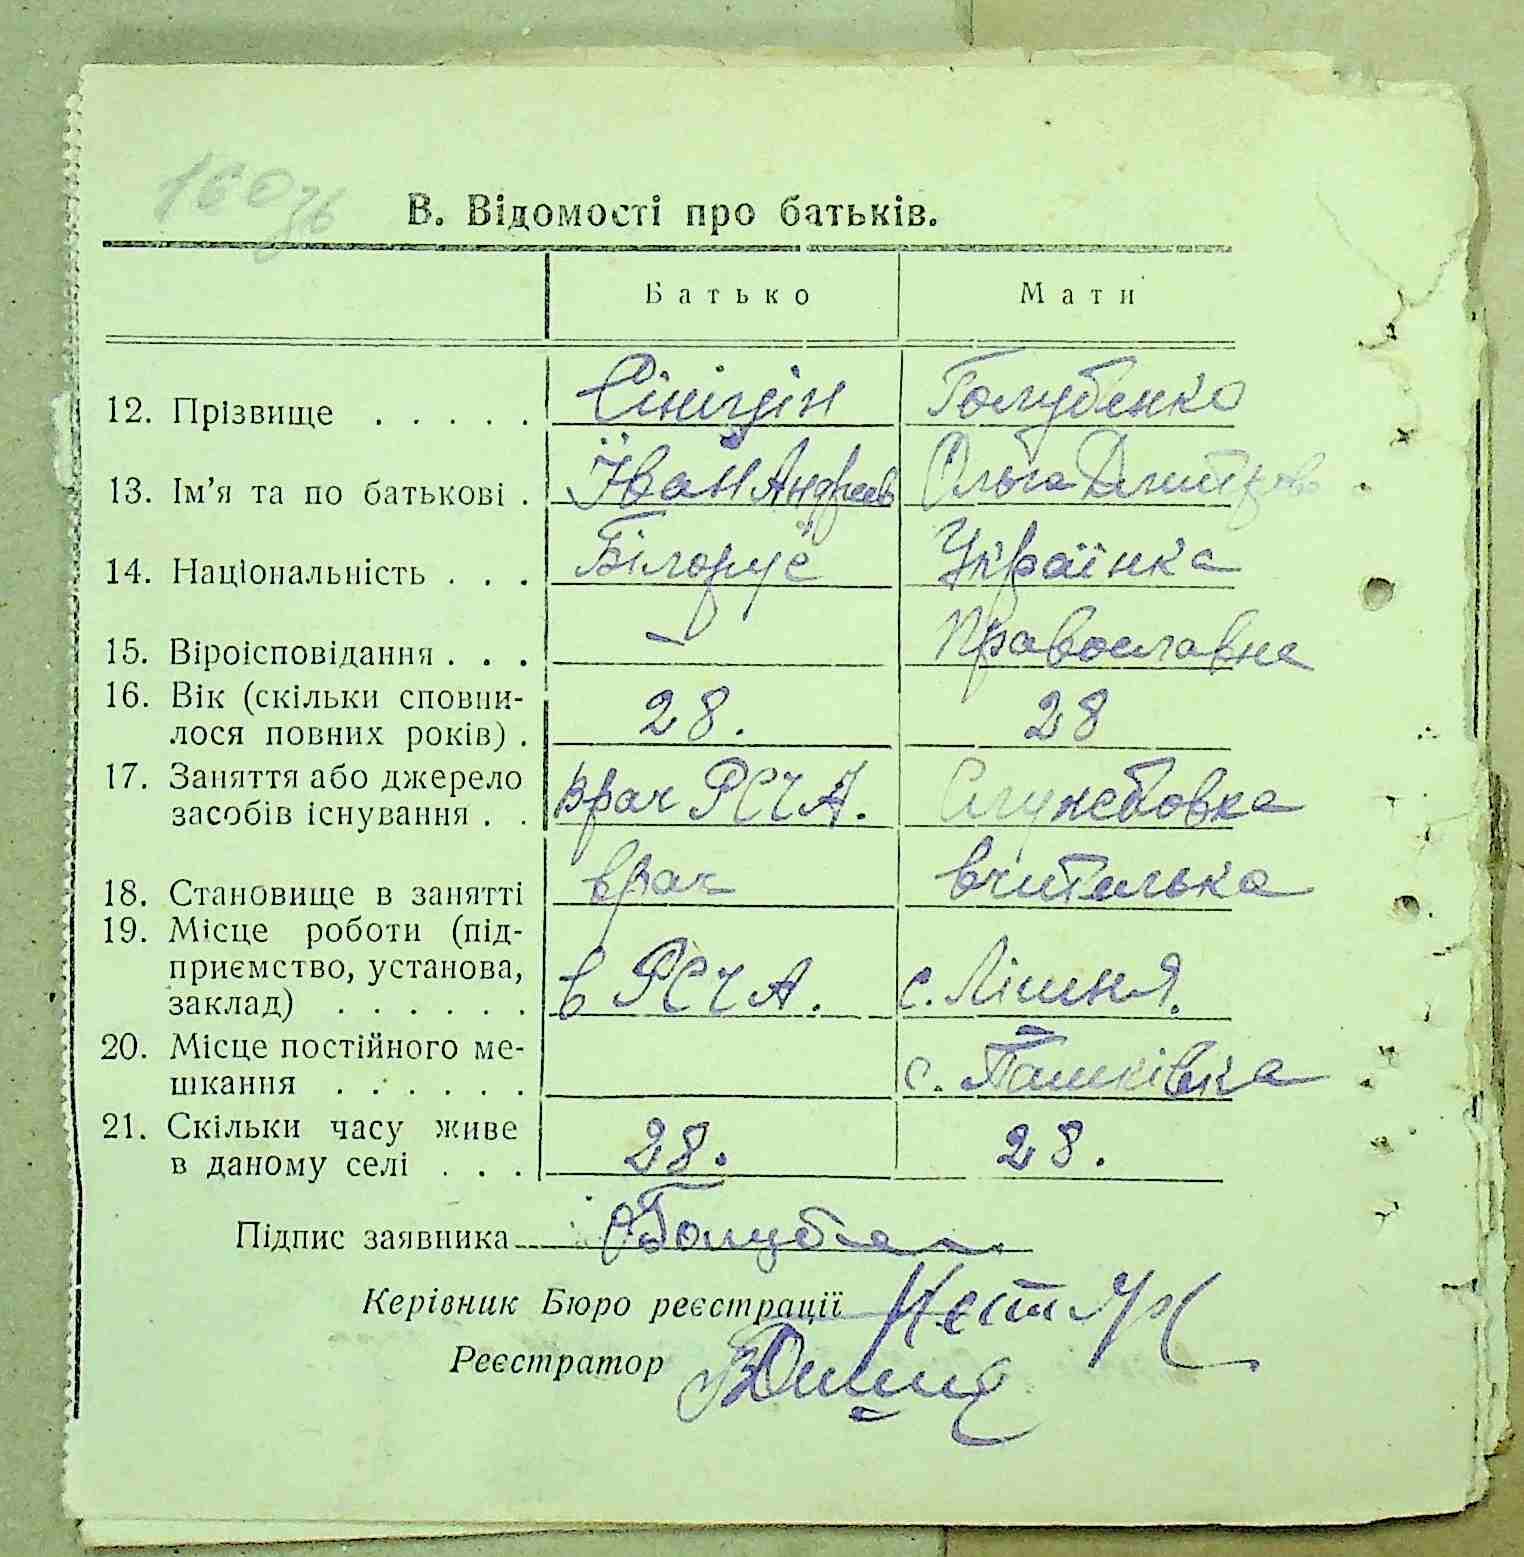 160зв
В. Відомості про батьків.
Батько Мати
12. Прізвище . . . . . Сініцін Голубенко
13. Ім'я та по батькові . Іван Андреев Ольга Дмитров
14. Національність . . . Білорус Українка
15. Віроісповідання . . . – Православна
16. Вік (скільки сповни-
лося повних років) . 28. 28
17. Заняття або джерело
засобів існування . . врач РСЧА. Службовка
18. Становище в занятті врач вчителька
19. Місце роботи (під-
приємство, установа,
заклад) . . . . . . в РСЧА. с. Лішня.
20. Місце постійного ме-
шкання . . . . . . с. Пашківка
21. Скільки часу живе
в даному селі . . . 28. 28.
Підпис заявника
Керівник Бюро реєстрації
Реєстратор